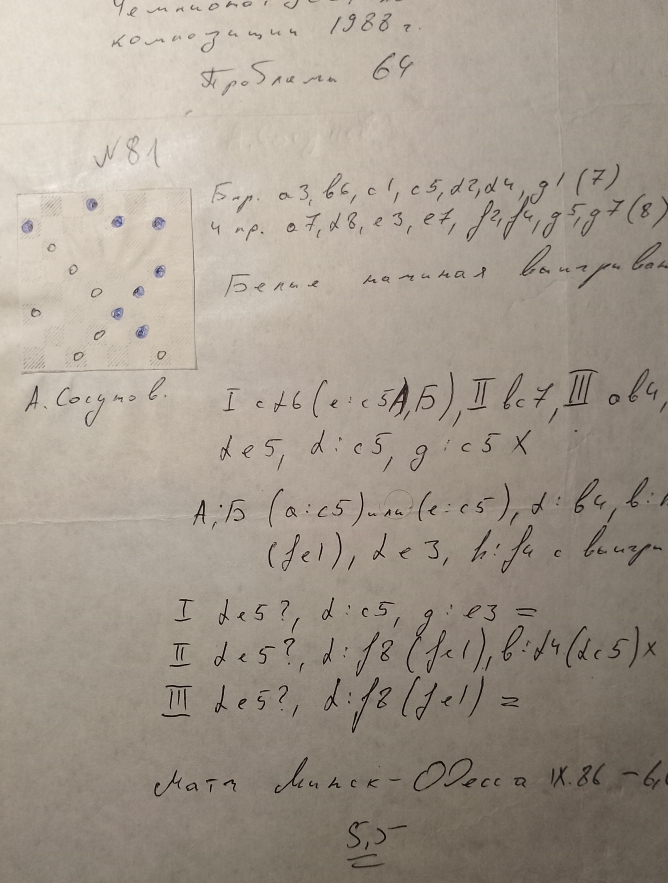 композиции 1988 г.
Проблемы 64
N 81
Б пр. a3, b6, c1, c5, d2, d4, g1 (7)
Ч пр. a7, d8, e3, e7, f2, f4, g5, g7 (8)
Белые начиная
А. Сосунов.
I cd6 (e:c5 А, Б), II bc7, III ab4,
de5, d:c5, g:c5 X
А, Б (a:c5) или (e:c5), d:b4, b:
(fe1), de3, h:f4 с
I de5?, d:c5, g:e3 =
II de5?, d:f8 (fe1), b:d4 (dc5) x
III de5?, d:f8 (fe1) =
Матч Минск - Одесса IX.86 -
5,5